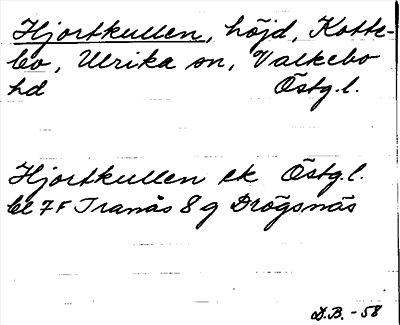 Hjortkullen, höjd, Kotte-
bo, Ulrika sn, Valkebo
hd Östg.l.
Hjortkullen ek Östg.l.
bl 7F Tranås 8 g Drögsnäs
D.B. - 58